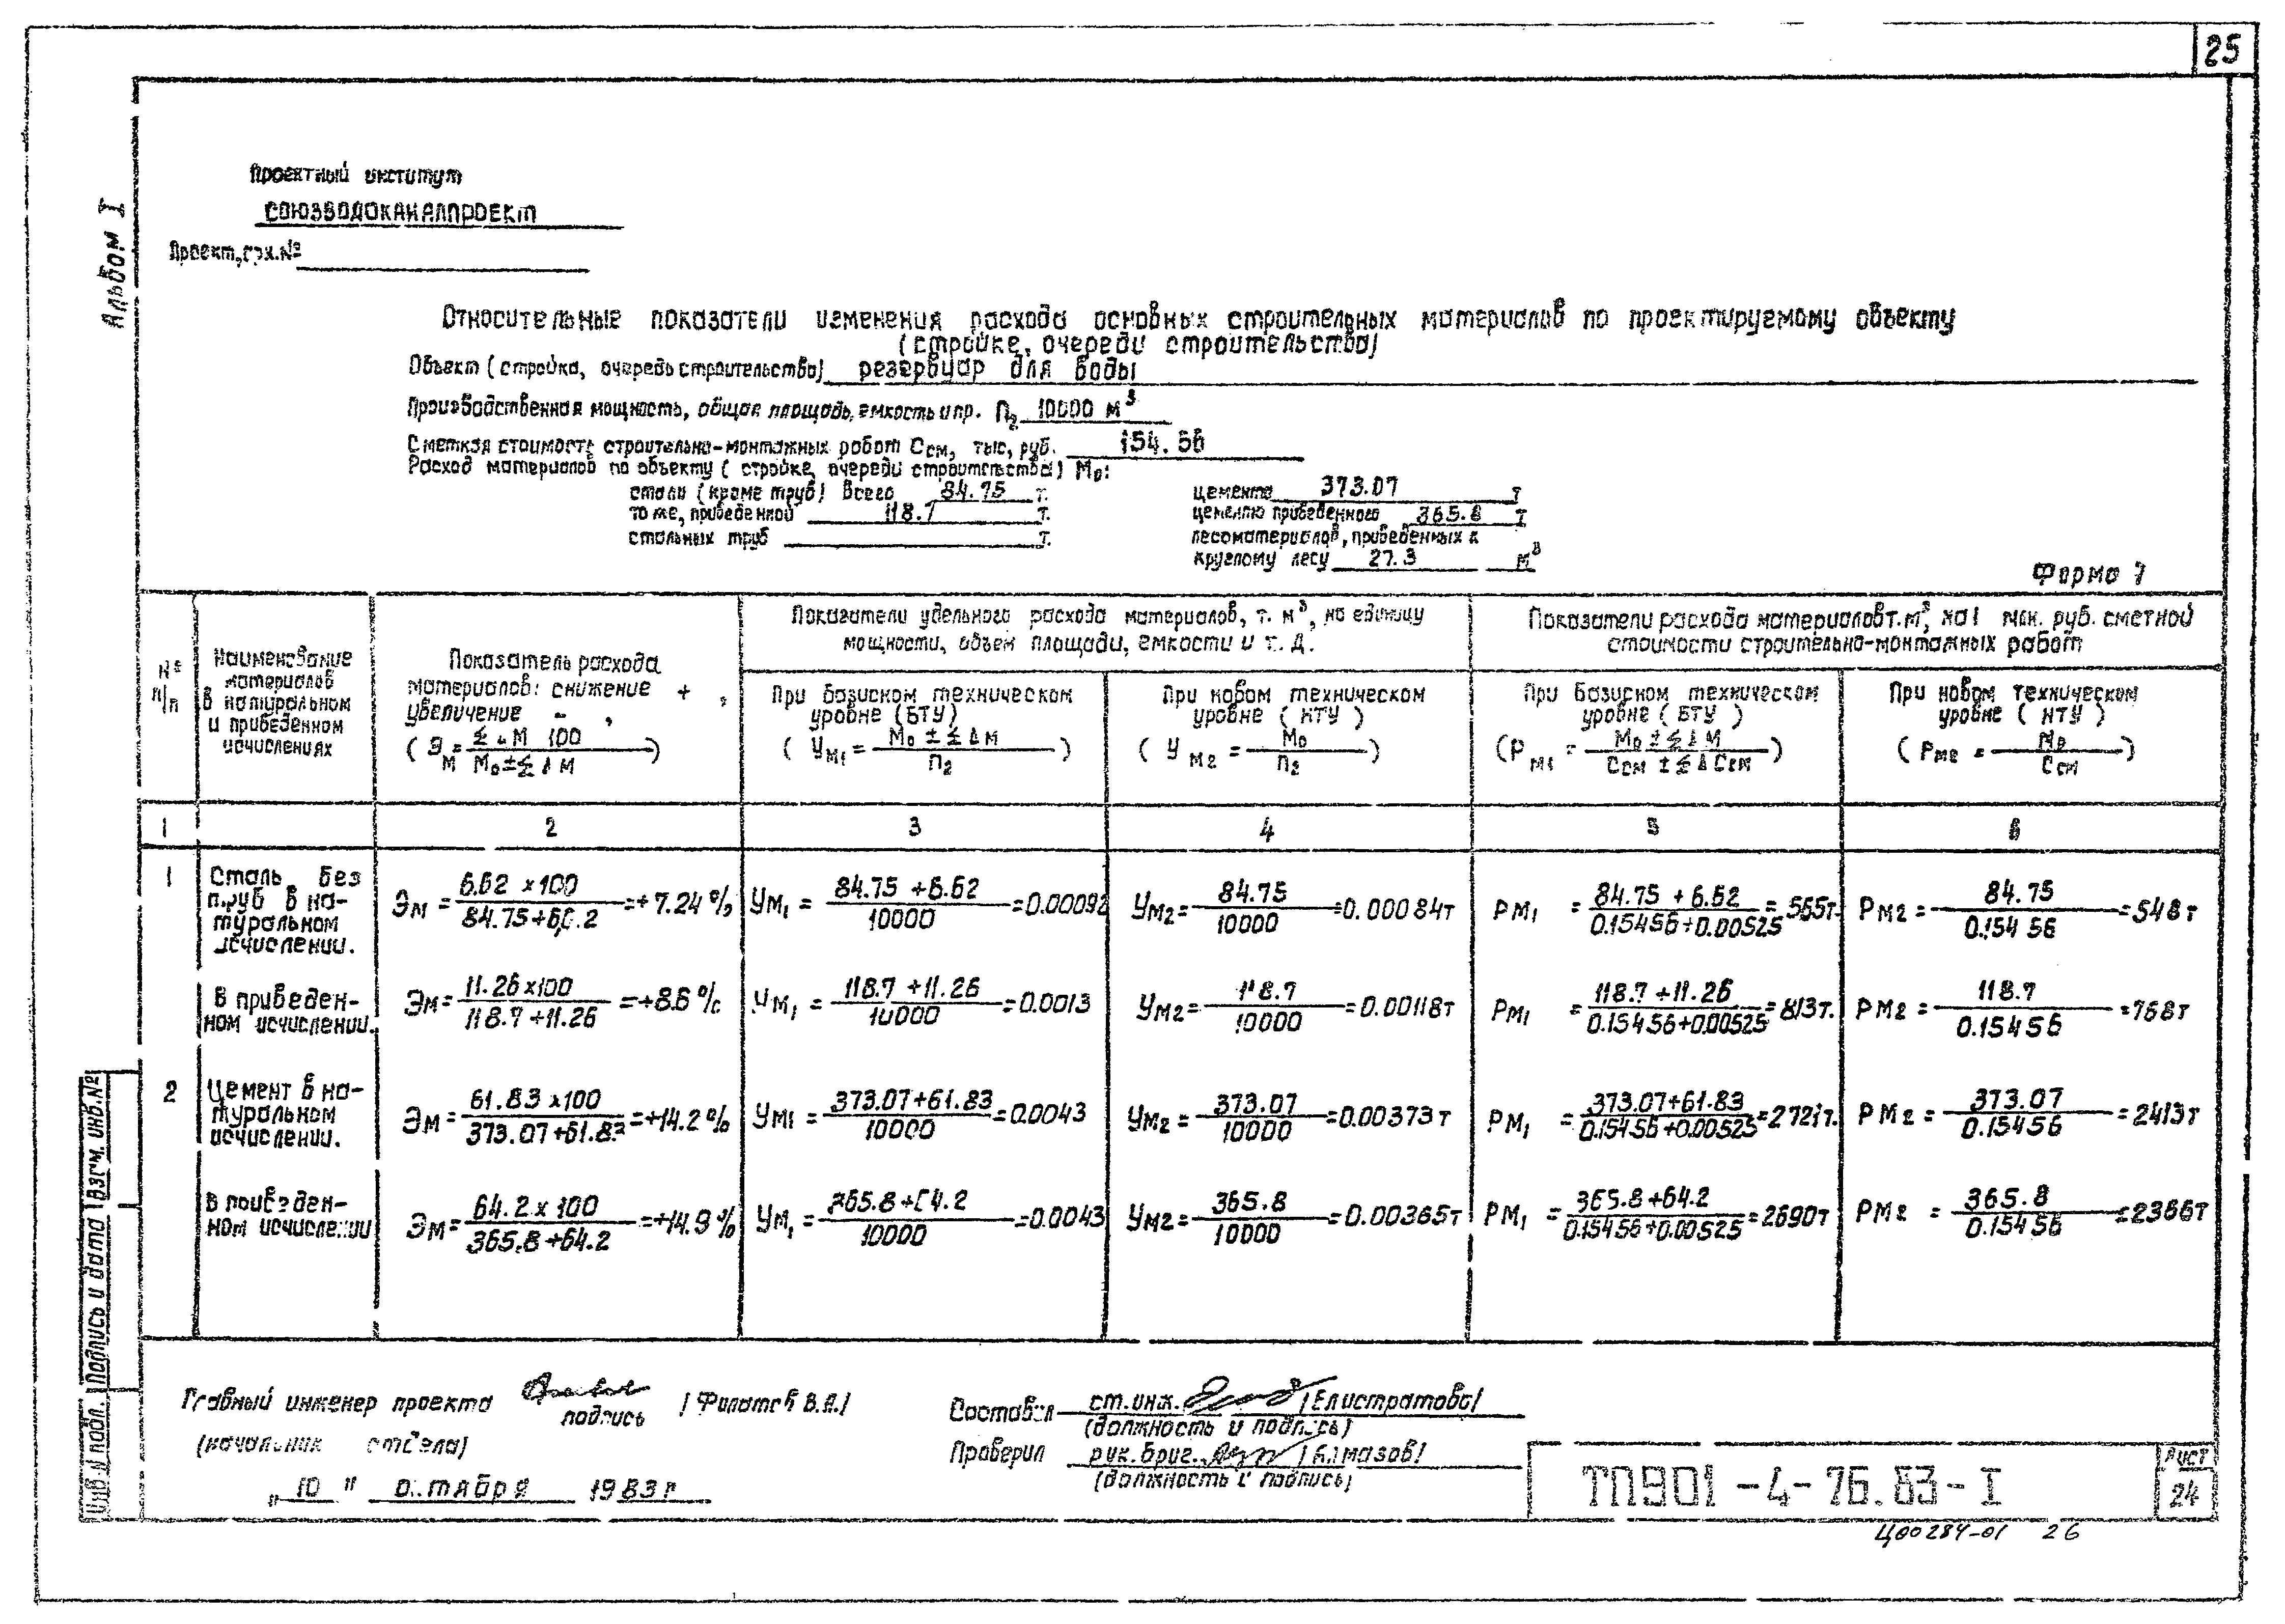 25
Альбом I
Проектный институт
СОЮЗВОДОКАНАЛПРОЕКТ
Проект, арх.№
Относительные показатели изменения расхода основных строительных материалов по проектируемому объекту
(стройке, очереди строительства)
Объект (стройка, очередь строительства) резервуар для воды
Производственная мощность, общая площадь, емкость и пр. П2 10000 м³
Сметная стоимость строительно-монтажных работ Ссм, тыс, руб. 154.56
Расход материалов по объекту (стройке, очереди строительства) Мо:
стали (кроме труб) всего 84.75 т.
то же, приведенной 118.7 т.
стальных труб т.
цемента 373.07 т
приведенного 365.8 т
лесоматериалов, приведенных к
круглому лесу 27.3 м³
Форма 7
№ п/п
Наименование материалов в натуральном и приведенном исчислениях
Показатель расхода материалов: снижение + , увеличение - ,
( Эм = Σ Δ М 100 / Мо ± Σ Δ М )
Показатели удельного расхода материалов, т. м³, на единицу мощности, объем площади, емкости и т. д.
При базисном техническом уровне (БТУ)
( Ум1 = Мо ± Σ Δ М / П2 )
При новом техническом уровне ( НТУ )
( У м2 = Мо / П2 )
Показатели расхода материалов т. м³, на 1 млн. руб. сметной стоимости строительно-монтажных работ
При базисном техническом уровне ( БТУ )
( Рм1 = Мо ± Σ Δ М / Ссм ± Σ Δ Ссм )
При новом техническом уровне ( НТУ )
( Рм2 = Мо / Ссм )
1 2 3 4 5 6
1 Сталь без труб в натуральном исчислении.
Эм = 6.62 х 100 / 84.75 + 6.2 = +7.24 %
Ум1 = 84.75 + 6.62 / 10000 = 0.00092
Ум2 = 84.75 / 10000 = 0.00084т
Рм1 = 84.75 + 6.62 / 0.15456 + 0.00525 = 565т.
Рм2 = 84.75 / 0.15456 = 548т
В приведенном исчислении.
Эм = 11.26 х 100 / 118.7 + 11.26 = +8.6 %
Ум1 = 118.7 + 11.26 / 10000 = 0.0013
Ум2 = 118.7 / 10000 = 0.00118т
Рм1 = 118.7 + 11.26 / 0.15456 + 0.00525 = 813т.
Рм2 = 118.7 / 0.15456 = 768т
2 Цемент в натуральном исчислении.
Эм = 61.83 х 100 / 373.07 + 61.83 = +14.2 %
Ум1 = 373.07 + 61.83 / 10000 = 0.0043
Ум2 = 373.07 / 10000 = 0.00373т
Рм1 = 373.07 + 61.83 / 0.15456 + 0.00525 = 2721т.
Рм2 = 373.07 / 0.15456 = 2413т
В приведенном исчислении
Эм = 64.2 х 100 / 365.8 + 64.2 = +14.9 %
Ум1 = 365.8 + 64.2 / 10000 = 0.0043
Ум2 = 365.8 / 10000 = 0.00365т
Рм1 = 365.8 + 64.2 / 0.15456 + 0.00525 = 2690т
Рм2 = 365.8 / 0.15456 = 2366т
Главный инженер проекта подпись / Филатов В.А./
(начальник отдела)
„ 10 " октября 1983 г
Составил ст. инж. /Елистратова/
(должность и подпись)
Проверил рук. бриг. /Алмазов/
(должность и подпись)
Инв.N подл. Подпись и дата Взам. инв.№
ТП901-4-76.83-I
Лист
24
Ц00284-01 26